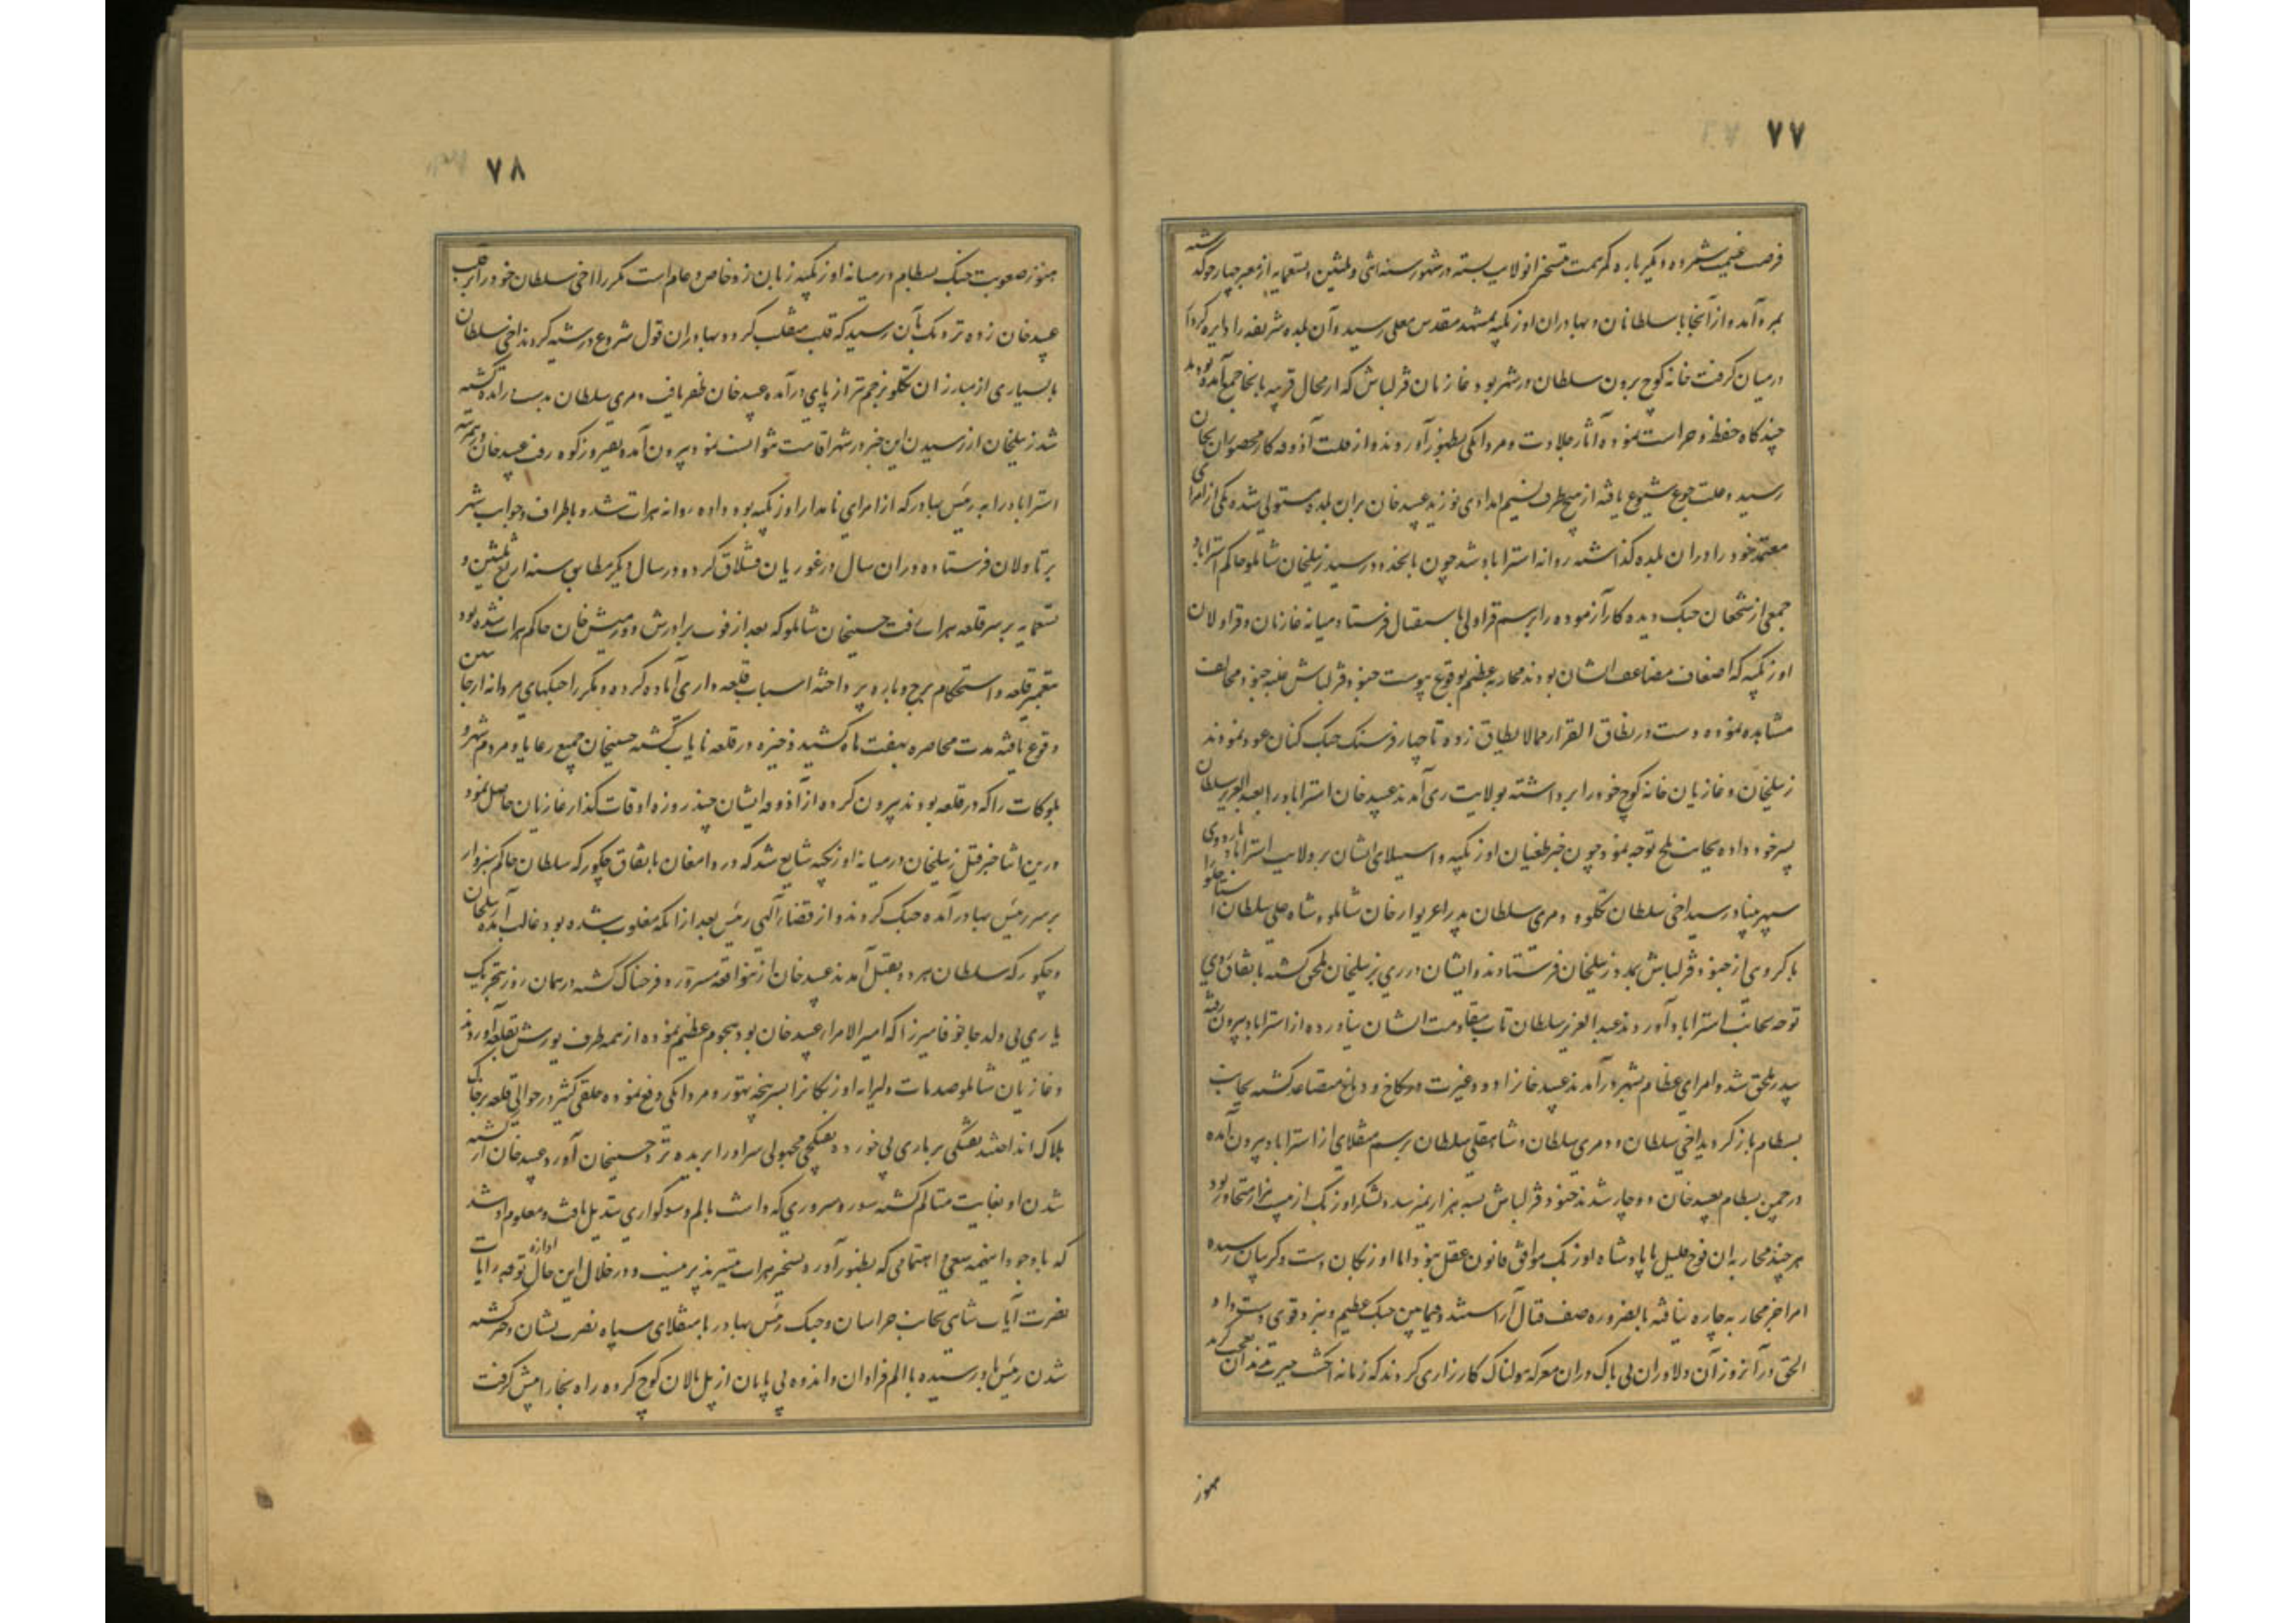 ۷۷
فرصت غنیمت شمرده دیگر باره کمر همت بتسخیر انولایت بسته در شهور سنه اثنی و ثلثین و تسعمایه از معبر چهارجو گذشته
بمرو آمد و از آنجا با سلطانان و بهادران اوزبکیه بمشهد مقدس معلی رسید و آن بلده شریفه را دایره کردار
درمیان گرفت خانه کوچ برون سلطان در شهر بود غازیان قزلباش که از محال قریبه بانجا جمع آمده بودند
چندگاه حفظ و حراست نموده آثار جلادت و مردانگی بظهور آوردند و از قلت آذوقه کار محصوران بجان
رسید و علت جوع شیوع یافته از هیچ طرف نسیم امدادی نوزید عبید خان بران بلده مستولی شده یکی از امرای
معتمد خود را دران بلده گذاشته روانه استراباد شد چون بانحدود رسید زینلخان شاملو حاکم استراباد
جمعی از شجعان جنگ دیده کار آزموده را برسم قراولی باستقبال فرستاد میانه غازیان و قراولان
اوزبکیه که اضعاف مضاعف ایشان بودند محاربه عظیم بوقوع پیوست جنود قزلباش غلبه جنود مخالف
مشاهده نموده دست در نطاق الفرار مما لا یطاق زده تا چهار فرسنگ جنگ کنان عود نمودند
زینلخان و غازیان خانه کوچ خود را برداشته بولایت ری آمدند عبید خان استراباد را بعبدالعزیز سلطان
پسر خود داده بجانب بلخ توجه نمود چون خبر طغیان اوزبکیه و استیلای ایشان بر ولایت استراباد باردوی
سپهر بنیاد رسید اخی سلطان تکلو و دمری سلطان پدر اعزیوار خان شاملو و شاه علی سلطان استاجلو را
با گروهی از جنود قزلباش بمدد زینلخان فرستادند و ایشان در ری بزینلخان ملحق گشته باتفاق روی
توجه بجانب استراباد آوردند عبدالعزیز سلطان تاب مقاومت ایشان نیاورده از استراباد بیرون رفته
بپدر ملحق شد و امرای عظام بشهر درآمدند عبید خانرا دود غیرت بکاخ دماغ متصاعد گشته بجانب
بسطام بازگردید اخی سلطان و دمری سلطان و شاهقلی سلطان برسم منقلای از استراباد بیرون آمده
در چمن بسطام بعبید خان دوچار شدند جنود قزلباش بسه هزار نمیرسید و لشکر اوزبک از بیست هزار متجاوز بود
هرچند محاربه ان فوج قلیل با پادشاه اوزبک موافق قانون عقل نبود اما اوزبکان دست و گریبان رسیده
امرا جز محاربه چاره نیافته بالضروره صف قتال آراستند و فیمابین جنگ عظیم و نبرد قوی دست داد
الحق در آنروز آن دلاوران بی باک دران معرکه هولناک کارزاری کردند که زمانه انگشت حیرت بدندان تعجب گزید
هنوز
۷۸
هنوز صعوبت جنگ بسطام در میانه اوزبکیه زبان زد خاص و عام است مکررا اخی سلطان خود را بر قلب
عبید خان زده نزدیک بآن رسید که قلب منقلب گردد بهادران قول شروع در شیبه کردند اخی سلطان
با بسیاری از مبارزان تکلو بزخم تیر از پای درآمده عبید خان ظفر یافت دمری سلطان بدست درآمده کشته
شد زینلخان از رسیدن این خبر در شهر اقامت نتوانست نمود بیرون آمده بفیروزکوه رفت عبید خان دیگر مرتبه
استراباد را به رینش بهادر که از امرای نامدار اوزبکیه بود داده روانه هرات شده باطراف و جوانب شهر
برتاولان فرستاده دران سال در غوریان قشلاق کرد و در سال دیگر مطابق سنه اربع ثلثین و
تسعمایه بر سر قلعه هرات رفت حسینخان شاملو که بعد از فوت برادرش دورمیش خان حاکم هرات شده بود
بتعمیر قلعه و استحکام برج و باره پرداخته اسباب قلعه داری آماده کرده و مکررا جنگهای مردانه از جانبین
وقوع یافته مدت محاصره بهفت ماه کشید ذخیره در قلعه نایاب گشته حسینخان جمیع رعایا و مردم شهر و
بلوکات را که در قلعه بودند بیرون کرده از آذوقه ایشان چند روزه اوقات گذار غازیان حاصل نمود
درین اثنا خبر قتل زینلخان در میانه اوزبکیه شایع شد که در دامغان باتفاق چکورکه سلطان حاکم سبزوار
بر سر رینش بهادر آمده جنگ کردند و از قضاء الهی رینش بعد از انکه مغلوب شده بود غالب آمده زینلخان
و چکورکه سلطان هر دو بقتل آمدند عبید خان از ینواقعه مسرور و فرحناک گشته در همان روز بتحریک
یاری بی ولد جانوفا میرزا که امیرالامراء عبید خان بود هجوم عظیم نموده از همه طرف یورش بقلعه آوردند
و غازیان شاملو صدمات دلیرانه اوزبکانرا بسرپنجه تهور و مردانگی دفع نموده خلقی کثیر در حوالی قلعه بر خاک
هلاک انداختند تفنگی بر یاری بی خورد و تفنگچی مجهولی سر او را بریده نزد حسینخان آورد عبید خان از کشته
شدن او بغایت متالم گشته سور و سروری که داشت بالم و سوگواری تبدیل یافت و معلوم او شد
که با وجود اینهمه سعی و اهتمامی که بظهور آورد تسخیر هرات میسر پذیر نیست و در خلال این حال اوازه توجه رایات
نصرت آیات شاهی بجانب خراسان و جنگ رینش بهادر با منقلای سپاه نصرت نشان و کشته
شدن رینش باو رسیده با الم فراوان و اندوه بی پایان از پل مالان کوچ کرده راه بخارا پیش گرفت